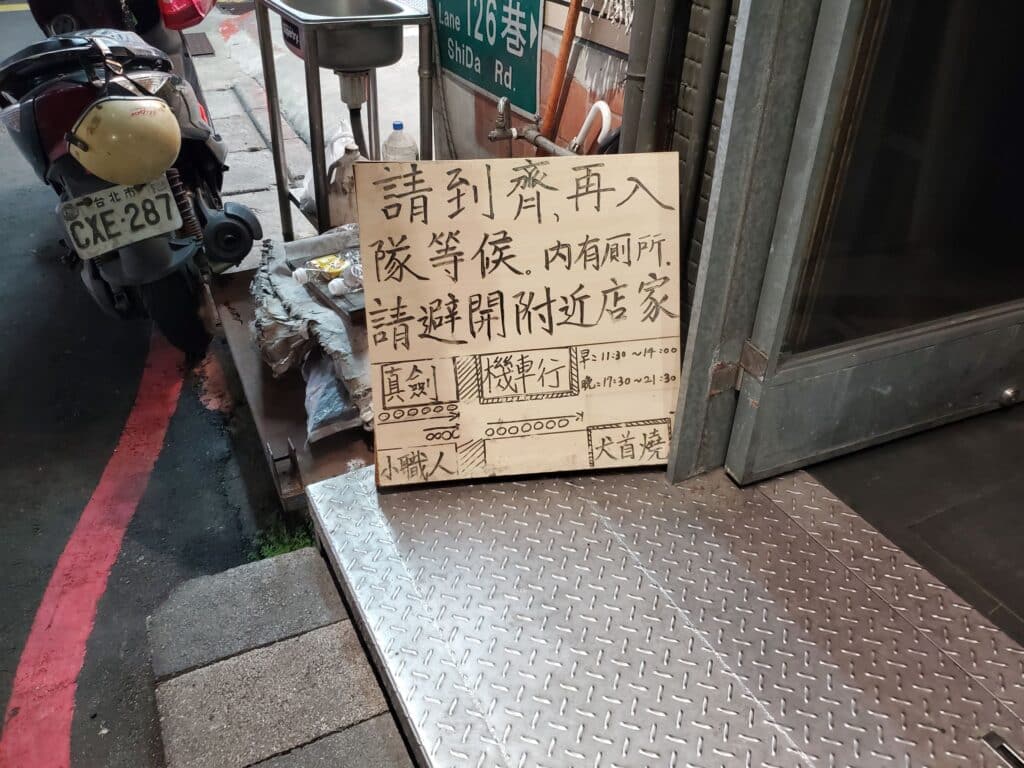 Lane 126巷
ShiDa Rd.
台北市
CXE-287
請到齊、再入
隊等候。內有厠所.
請避開附近店家
真劍
機車行
早:11:30～14:00
晚:17:30～21:30
小職人
犬首燒